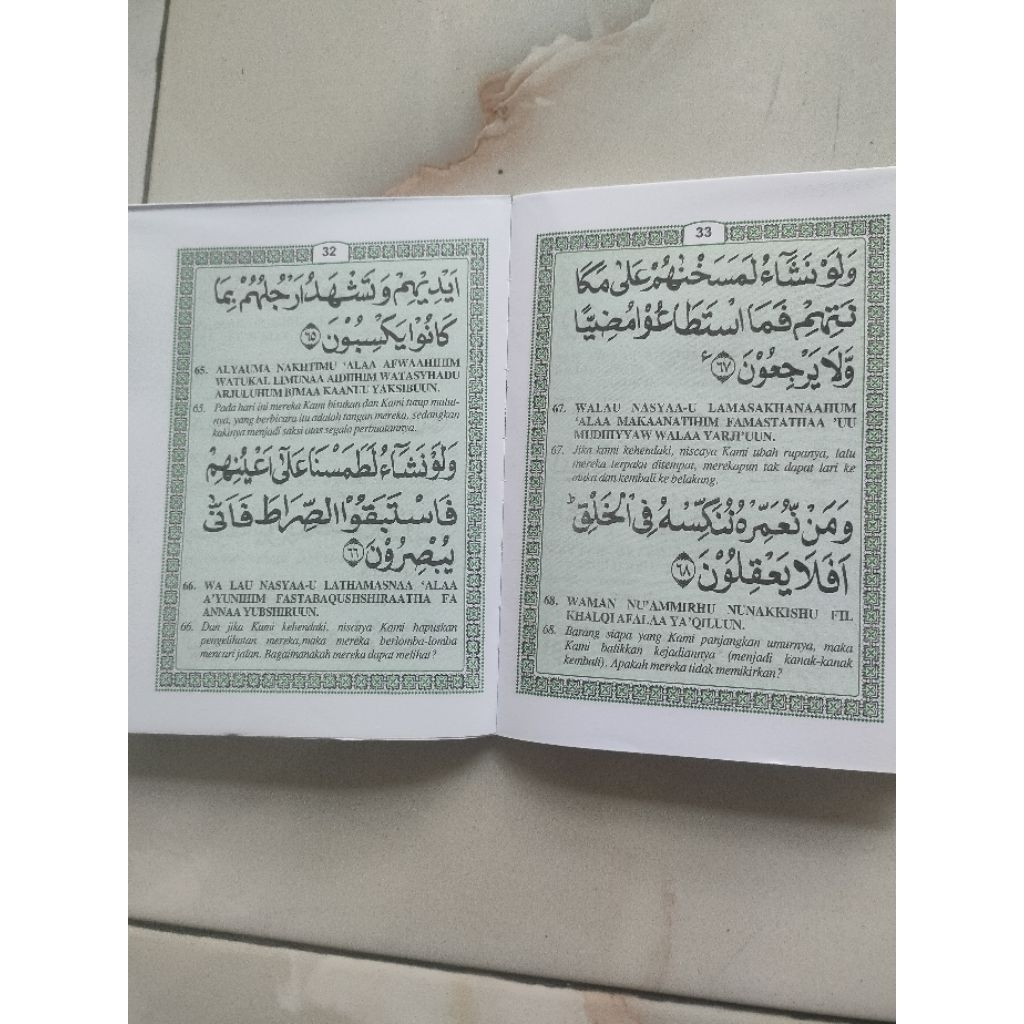 32
اَيْدِيْهِمْ وَتَشْهَدُ اَرْجُلُهُمْ بِمَا
كَانُوْا يَكْسِبُوْنَ ﴿٦٥﴾
65. ALYAUMA NAKHTIMU ‘ALAA AFWAAHIHIM
WATUKAL LIMUNAA AIDIIHIM WATASYHADU
ARJULUHUM BIMAA KAANUU YAKSIBUUN.
65. Pada hari ini mereka Kami bisukan dan Kami tutup mulut-
nya, yang berbicara itu adalah tangan mereka, sedangkan
kakinya menjadi saksi atas segala perbuatannya.
وَلَوْ نَشَآءُ لَطَمَسْنَا عَلٰٓى اَعْيُنِهِمْ
فَاسْتَبَقُوا الصِّرَاطَ فَاَنّٰى
يُبْصِرُوْنَ ﴿٦٦﴾
66. WA LAU NASYAA-U LATHAMASNAA ‘ALAA
A’YUNIHIM FASTABAQUSHSHIRAATHA FA
ANNAA YUBSHIRUUN.
66. Dan jika Kami kehendaki, niscaya Kami hapuskan
pengelihatan mereka,maka mereka berlomba-lomba
mencari jalan. Bagaimanakah mereka dapat melihat?
33
وَلَوْ نَشَآءُ لَمَسَخْنٰهُمْ عَلٰى مَكَا
نَتِهِمْ فَمَا اسْتَطَاعُوْا مُضِيًّا
وَّلَا يَرْجِعُوْنَ ﴿٦٧﴾ ع
67. WALAU NASYAA-U LAMASAKHANAAHUM
‘ALAA MAKAANATIHIM FAMASTATHAA ’UU
MUDHIYYAW WALAA YARJI’UUN.
67. Jika kami kehendaki, niscaya Kami ubah rupanya, lalu
mereka terpaku ditempat, merekapun tak dapat lari ke
muka dan kembali ke belakang.
وَمَنْ نُّعَمِّرْهُ نُنَكِّسْهُ فِى الْخَلْقِ ط
اَفَلَا يَعْقِلُوْنَ ﴿٦٨﴾
68. WAMAN NU’AMMIRHU NUNAKKISHU FIL
KHALQI AFALAA YA’QILUUN.
68. Barang siapa yang Kami panjangkan umurnya, maka
Kami balikkan kejadiannya (menjadi kanak-kanak
kembali). Apakah mereka tidak memikirkan?